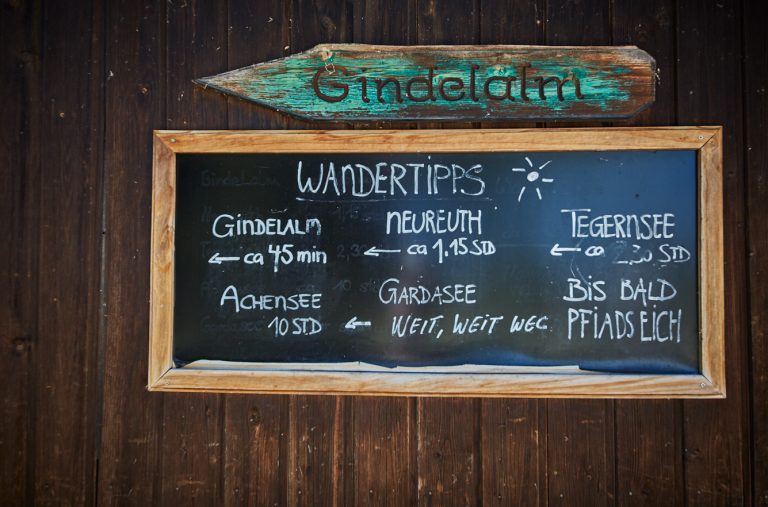 Gindelalm
WANDERTIPPS
GINDELALM
← ca 45 min
NEUREUTH
← ca 1.15 STD
TEGERNSEE
← ca 2,30 STD
ACHENSEE
10 STD
GARDASEE
← WEIT, WEIT WEG
BIS BALD
PFIADS EICH